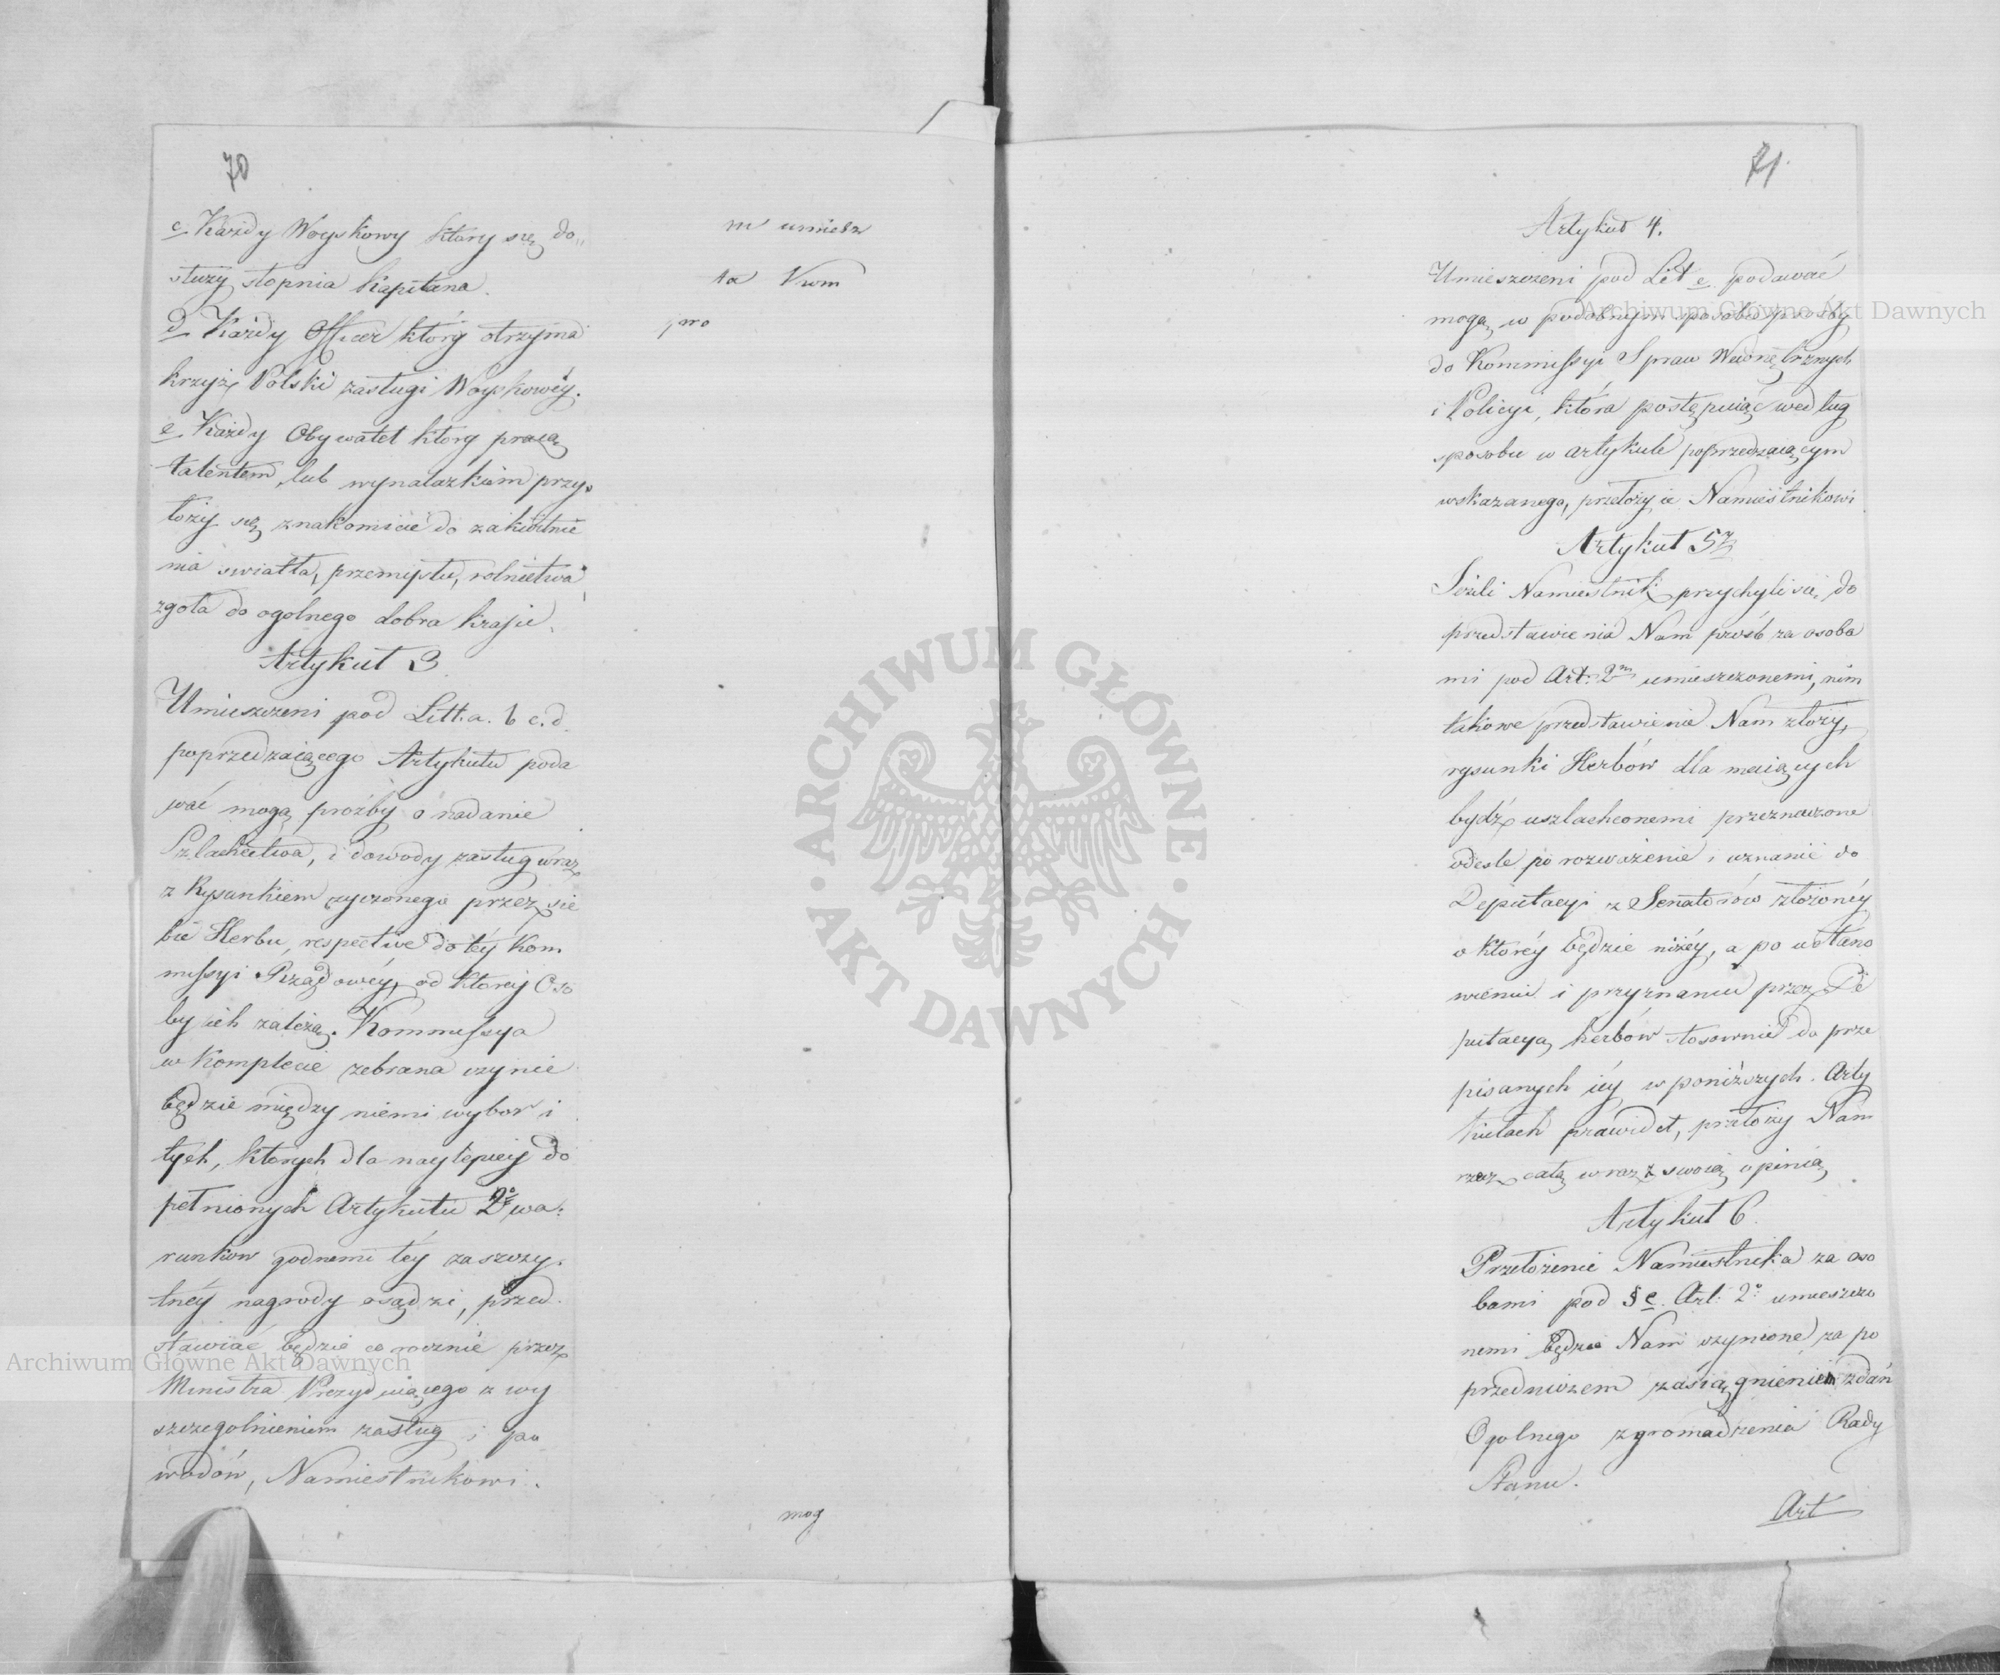 70
c Każdy Woyskowy który się do„
służy stopnia Kapitana.
d Każdy Officer który otrzyma
krzyż Polski zasługi Woyskowéy.
e Każdy Obywatel który pracą
talentem, lub wynalazkiem przy„
łoży się znakomicie do zakwitnie
nia swiatła, przemysłu, rolnictwa,
zgoła do ogolnego dobra kraju.
Artykuł 3
Umieszczeni pod Litt. a. b c. d
poprzedzaiącego Artykułu poda
wać mogą proźby o nadanie
Szlachectwa, i dowody zasług wraz
z Rysunkiem życzonego przez sie
bie Herbu, respective do téy Kom
missyi Rządowéy, od któréy Oso
by ich zależą. Kommissya
w Komplecie zebrana czynić
będzie między niemi wybor i
tych, których dla naylepiéy do
pełnionych Artykułu 2º wa„
runków godnemi téy zaszczy„
tnéy nagrody osądzi, przed„
stawiać będzie corocznie przez
Ministra Prezyduiącego z wy
szczegolnieniem zasług i po
wodów, Namiestnikowi.
m umiesz
ta Vwm
pro
mog
71
Artykuł 4.
Umieszczeni pod Lit e podawać
mogą w podobnym sposobie prośby
do Kommissyi Spraw Wewnętrznych
i Policyi, która postępuiąc według
sposobu w artykule poprzedzaiącym
wskazanego, przełoży ie Namiestnikowi
Artykuł 5ty
Jeżeli Namiestnik przychyli się do
przedstawienia Nam prośb za osoba
mi pod Art: 2m umieszczonemi, nim
takowe przedstawienie Nam złoży,
rysunki Herbów dla maiących
bydź uszlachconemi przeznaczone
odeśle po rozważenie i uznanie do
Deputacyi z Senatorów złożonéy
o któréy będzie niżéy, a po ustano
wieniu i przyznaniu przez De
putacyą herbów stosownie do prze
pisanych iéy w poniższych Arty
kułach prawideł, przełoży Nam
rzecz całą wraz z swoią opinią
Artykuł 6.
Przełożenie Namiestnika za oso
bami pod § e. Art: 2º umieszczo
nemi będzie Nam czynione, za po
przedniczem zasiągnieniem zdań
Ogolnego zgromadzenia Rady
Stanu.
Art
ARCHIWUM GŁÓWNE
AKT DAWNYCH
Archiwum Główne Akt Dawnych
Archiwum Główne Akt Dawnych